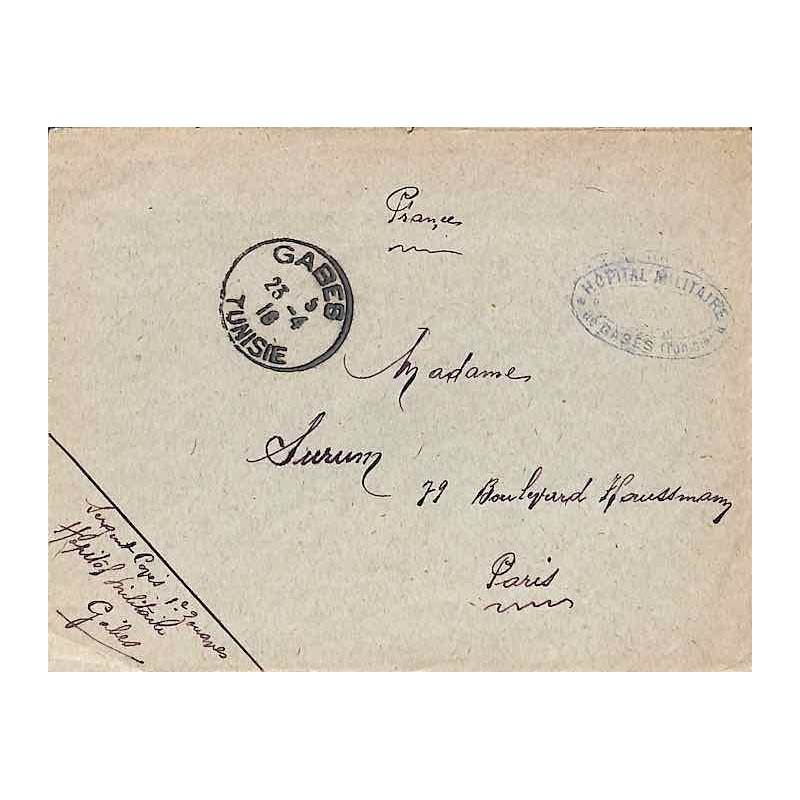 France
GABES
23 -4
16
TUNISIE
* HÔPITAL MILITAIRE *
de GABÈS (Tunisie)
Madame
Surum
79 Boulevard Haussmann
Paris
Sergent 1er Zouaves
Hôpital Militaire
Gabès